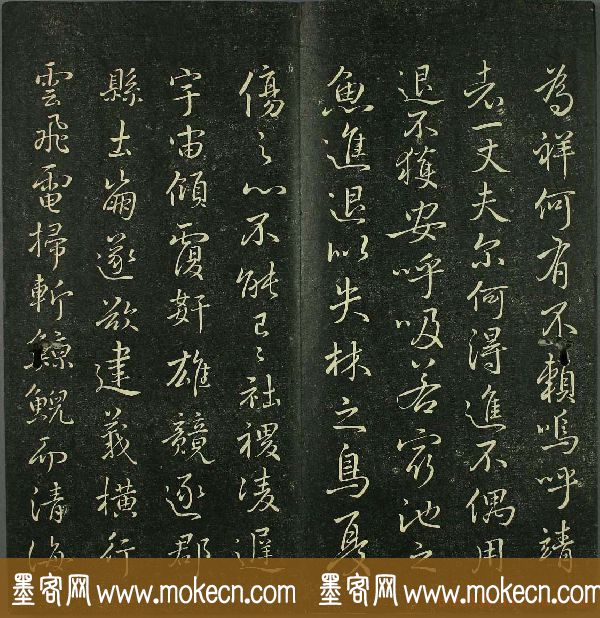 為祥何有不賴嗚呼靖
老一丈夫尔何得進不偶用
退不獲安呼吸若窮池之
魚進退以失林之鳥憂
傷之心不能已已社稷凌遲
宇宙傾覆奸雄競逐郡
縣土崩遂欲建義橫行
雲飛電掃斬鯨鯢而清海
墨客网 www.mokecn.com 墨客网 www.mokecn.com